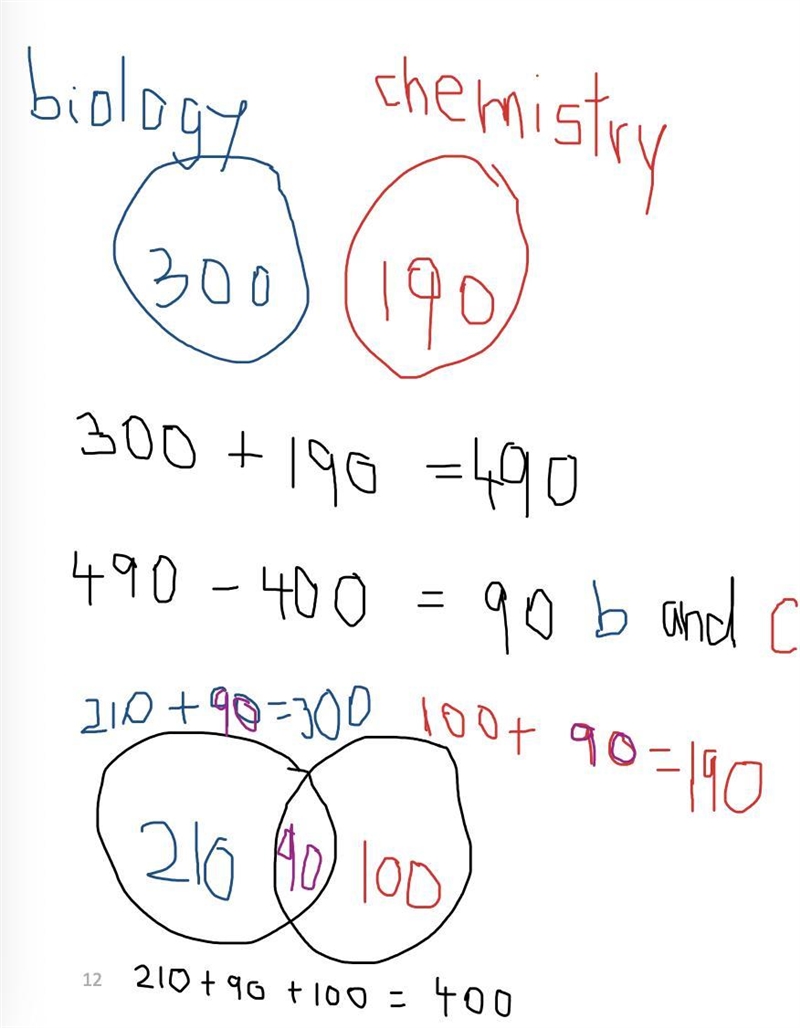 biology chemistry
300 190
300 + 190 = 490
490 - 400 = 90 b and c
210 + 90 = 300 100 + 90 = 190
210 90 100
12 210 + 90 + 100 = 400